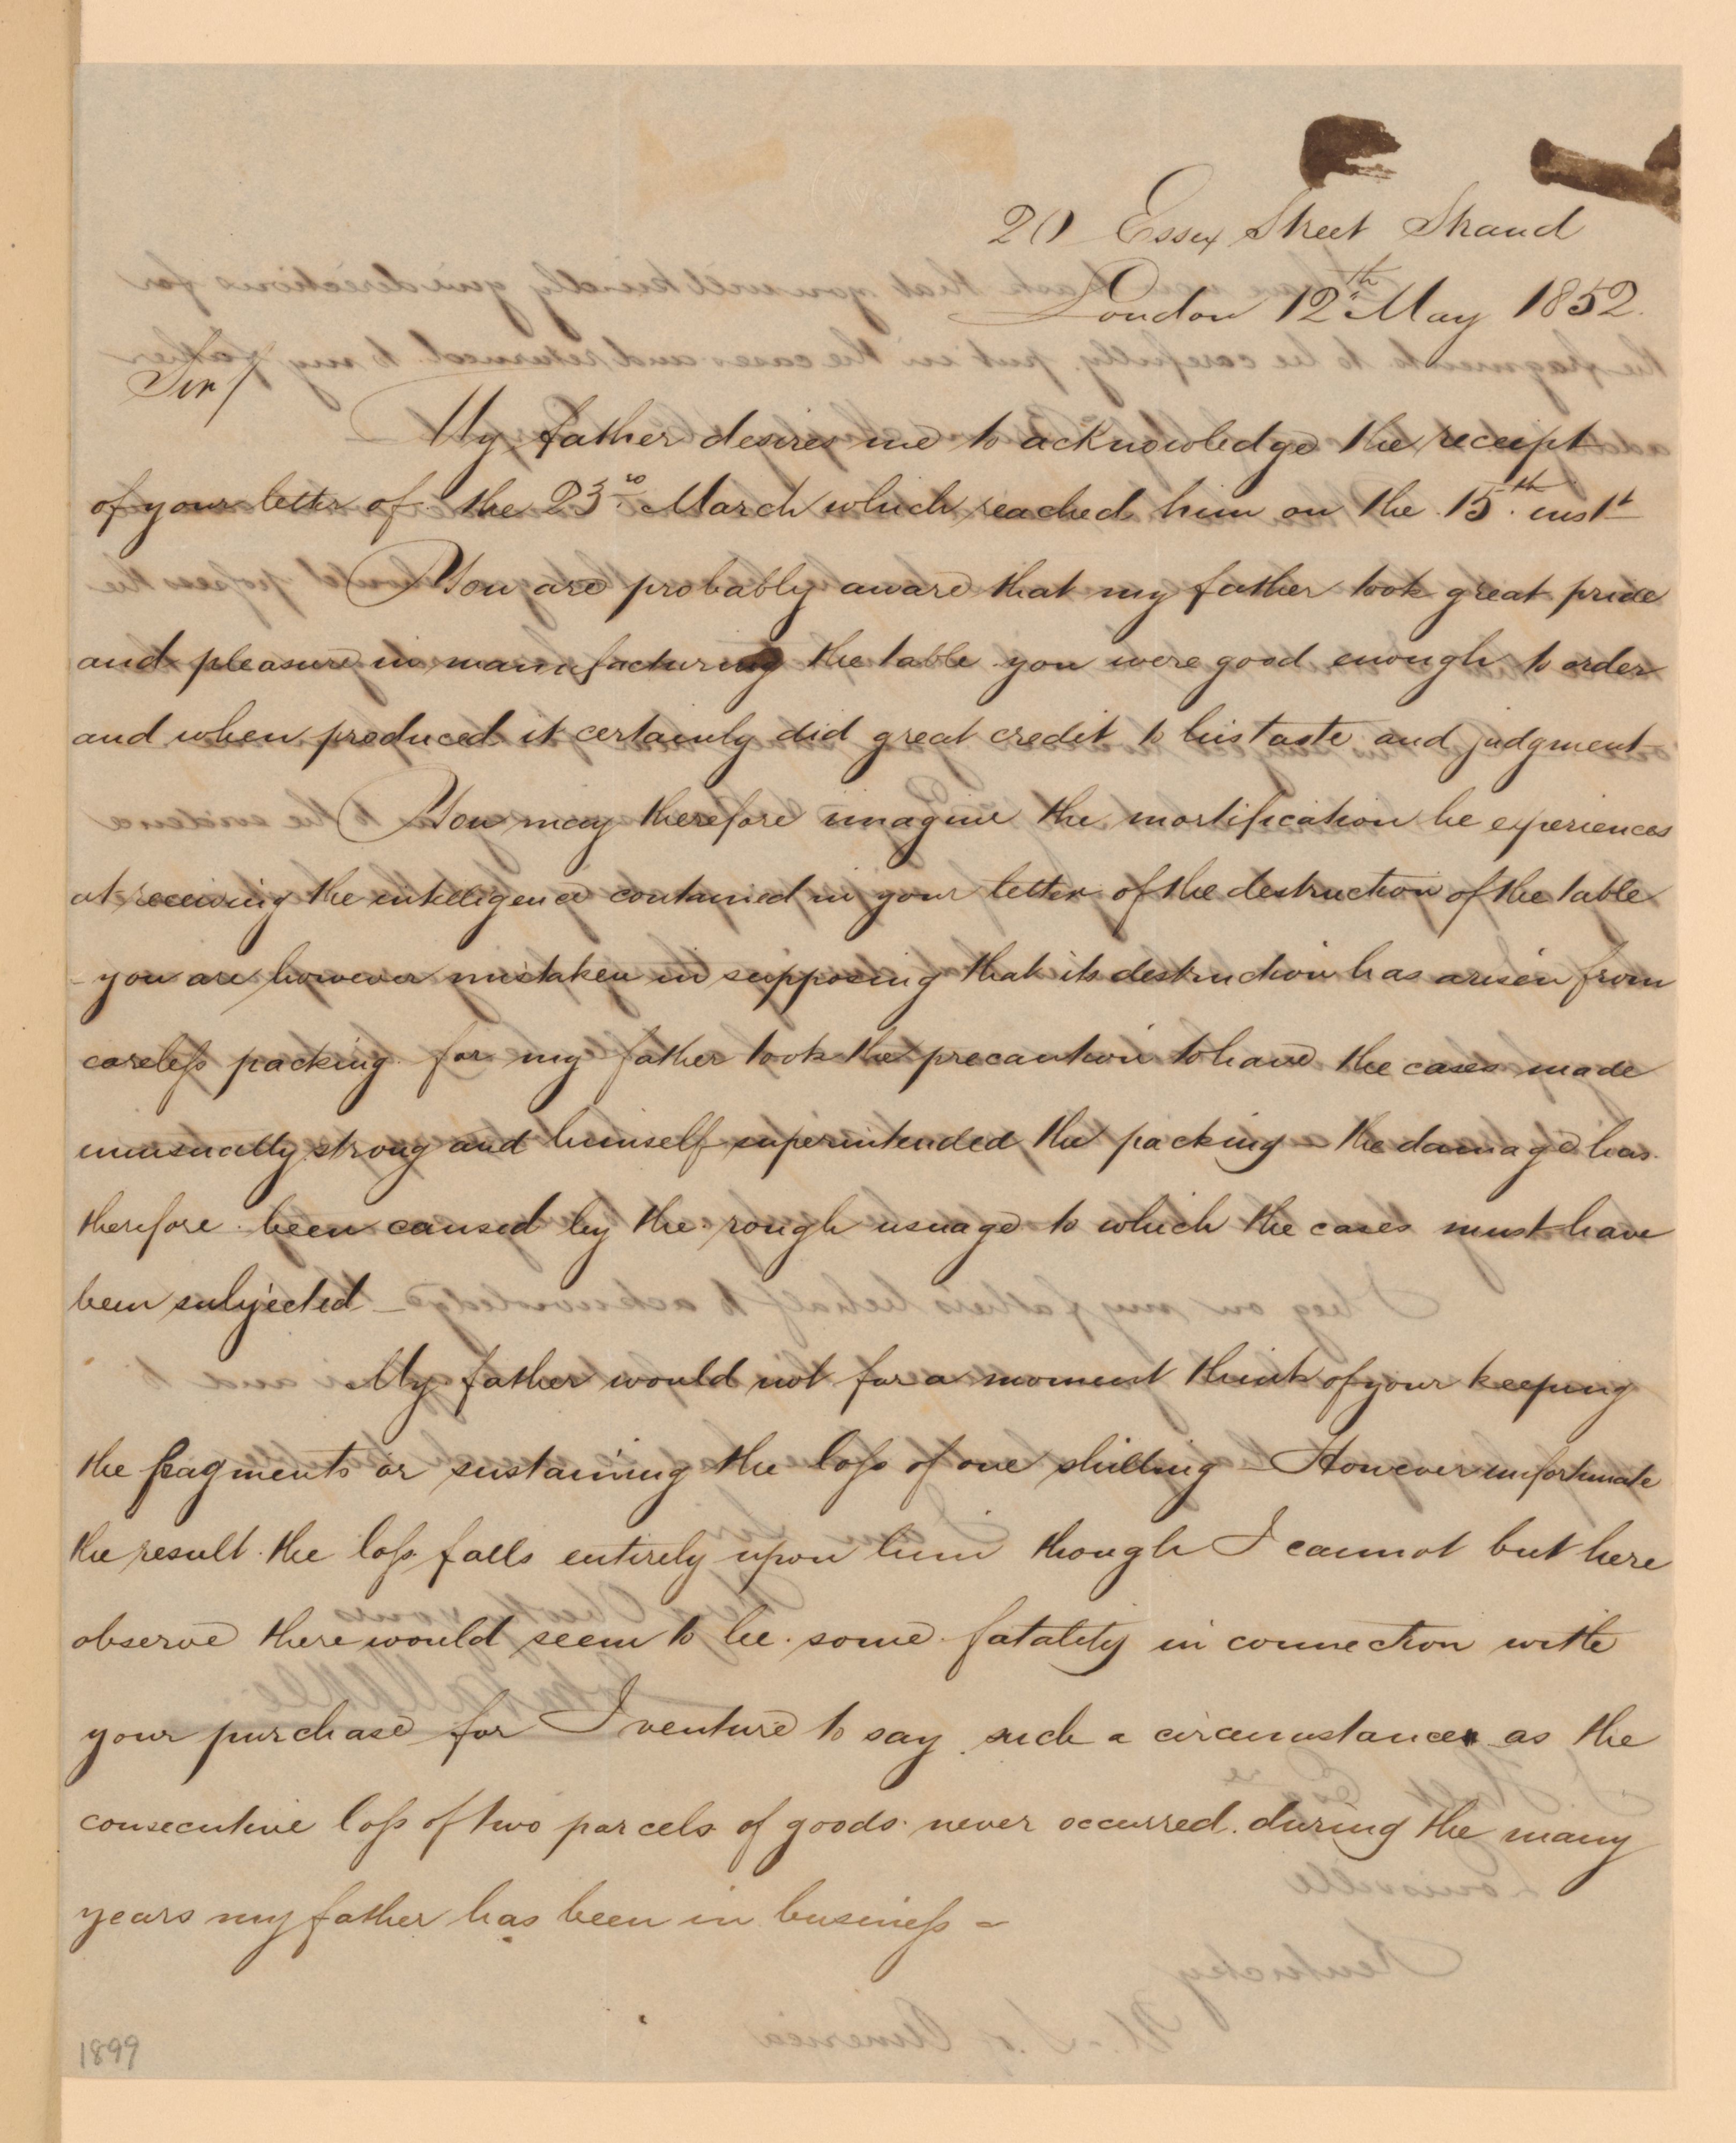 20 Essex Street Strand
London 12th May 1852.
Sir/
My father desires me to acknowledge the receipt
of your letter of the 23rd March which reached him on the 15th inst
You are probably aware that my father took great pride
and pleasure in manufacturing the table you were good enough to order
and when produced it certainly did great credit to his taste and judgment
You may therefore imagine the mortification he experiences
at receiving the intelligence contained in your letter of the destruction of the table
- you are however mistaken in supposing that its destruction has arisen from
careless packing for my father took the precaution to have the cases made
unusually strong and himself superintended the packing - the damage has
therefore been caused by the rough usuage to which the cases must have
been subjected -
My father would not for a moment think of your keeping
the fragments or sustaining the loss of one shilling - However unfortunate
the result the loss falls entirely upon him though I cannot but here
observe there would seem to be some fatality in connection with
your purchase for I venture to say such a circumstance as the
consecutive loss of two parcels of goods never occurred during the many
years my father has been in business -
1899